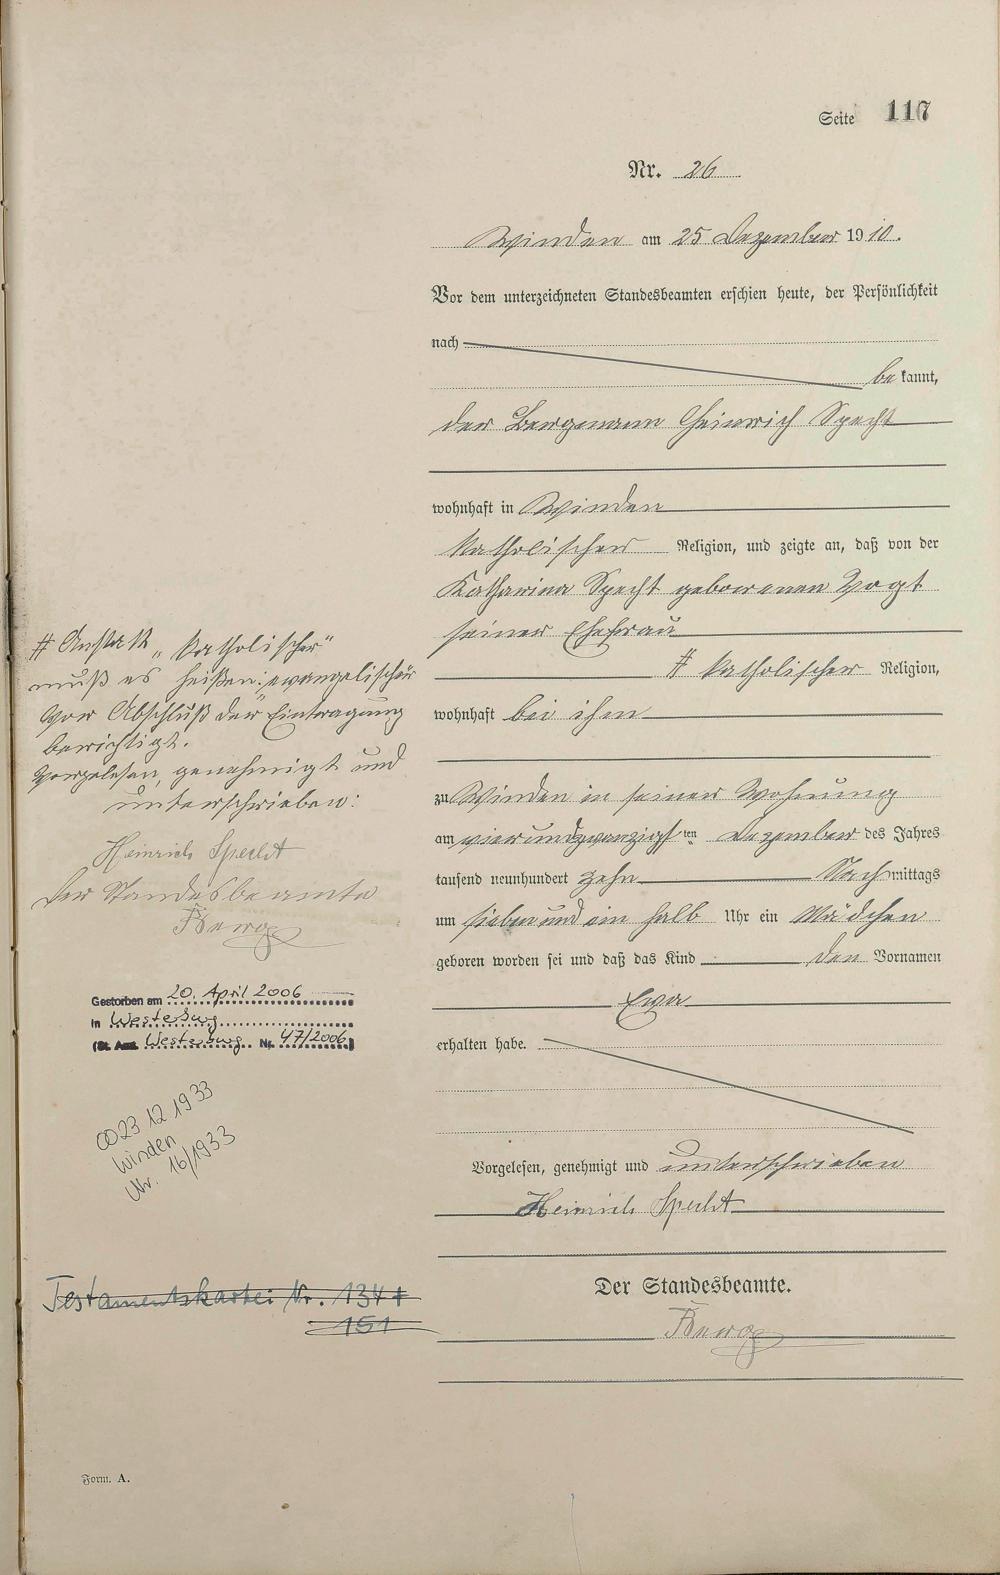 Seite 117
Nr. 26
Winden am 25 Dezember 1910.
Vor dem unterzeichneten Standesbeamten erschien heute, der Persönlichkeit
nach
be kannt,
der Bergmann Heinrich Specht
wohnhaft in Winden
katholischer Religion, und zeigte an, daß von der
Katharina Specht geborenen Vogt
seiner Ehefrau
# katholischer Religion,
wohnhaft bei ihm
zu Winden in seiner Wohnung
am vierundzwanzigsten Dezember des Jahres
tausend neunhundert zehn Nachmittags
um sieben und ein halb Uhr ein Mädchen
geboren worden sei und daß das Kind den Vornamen
Eva
erhalten habe.
Vorgelesen, genehmigt und unterschrieben
Heinrich Specht
Der Standesbeamte.
# Anstatt „katholischer"
muß es heißen: evangelischer
Vor Abschluß der Eintragung
berichtigt.
Vorgelesen, genehmigt und
unterschrieben:
Heinrich Specht
Der Standesbeamte
Gestorben am 20. April 2006
in Westerburg
(St. Amt Westerburg Nr. 47/2006)
∞ 23 12 1933
Winden
Nr. 16/1933
Testamentskartei Nr. 134 +
151
Form. A.